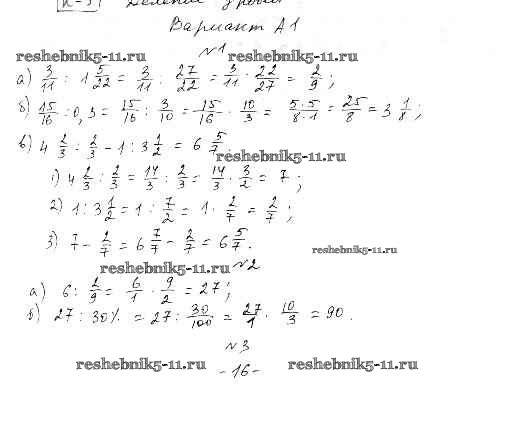 К-5. Деление дробей
Вариант А1
№1
reshebnik5-11.ru reshebnik5-11.ru
а) 3/11 : 1 5/22 = 3/11 : 27/22 = 3/11 · 22/27 = 2/9 ;
б) 15/16 : 0,3 = 15/16 : 3/10 = 15/16 · 10/3 = 5·5/8·1 = 25/8 = 3 1/8 ;
в) 4 2/3 : 2/3 - 1 : 3 1/2 = 6 5/7.
reshebnik5-11.ru
1) 4 2/3 : 2/3 = 14/3 : 2/3 = 14/3 · 3/2 = 7 ;
2) 1 : 3 1/2 = 1 : 7/2 = 1 · 2/7 = 2/7 ;
3) 7 - 2/7 = 6 7/7 - 2/7 = 6 5/7.
reshebnik5-11.ru
reshebnik5-11.ru №2
а) 6 : 2/9 = 6/1 · 9/2 = 27 ;
б) 27 : 30% = 27 : 30/100 = 27/1 · 10/3 = 90.
№3
reshebnik5-11.ru reshebnik5-11.ru
-16-